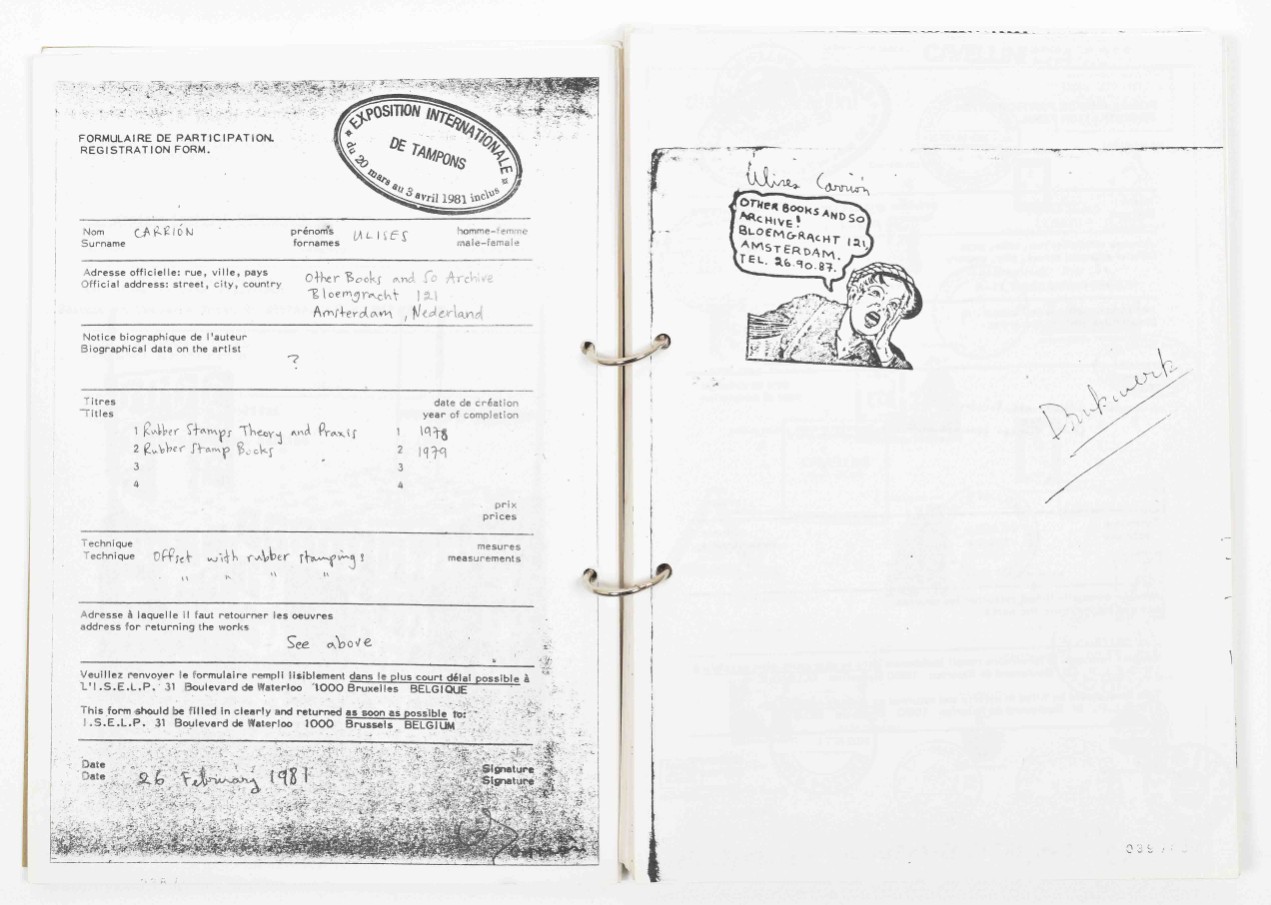 FORMULAIRE DE PARTICIPATION.
REGISTRATION FORM.
EXPOSITION INTERNATIONALE
DE TAMPONS
du 20 mars au 3 avril 1981 inclus
Nom CARRIÓN prénoms ULISES homme-femme
Surname fornames male-female
Adresse officielle: rue, ville, pays Other Books and So Archive
Official address: street, city, country Bloemgracht 121
Amsterdam, Nederland
Notice biographique de l'auteur
Biographical data on the artist
?
Titres date de création
Titles year of completion
1 Rubber Stamps Theory and Praxis 1 1978
2 Rubber Stamp Books 2 1979
3 3
4 4
prix
prices
Technique mesures
Technique Offset with rubber stampings measurements
" " " "
Adresse à laquelle il faut retourner les oeuvres
address for returning the works
See above
Veuillez renvoyer le formulaire rempli lisiblement dans le plus court délai possible à
L'I.S.E.L.P. 31 Boulevard de Waterloo 1000 Bruxelles BELGIQUE
This form should be filled in clearly and returned as soon as possible to:
I.S.E.L.P. 31 Boulevard de Waterloo 1000 Brussels BELGIUM
Date Signature
Date 26 February 1981 Signature
Ulises Carrión
OTHER BOOKS AND SO
ARCHIVE!
BLOEMGRACHT 121,
AMSTERDAM.
TEL. 26.90.87.
Drukwerk